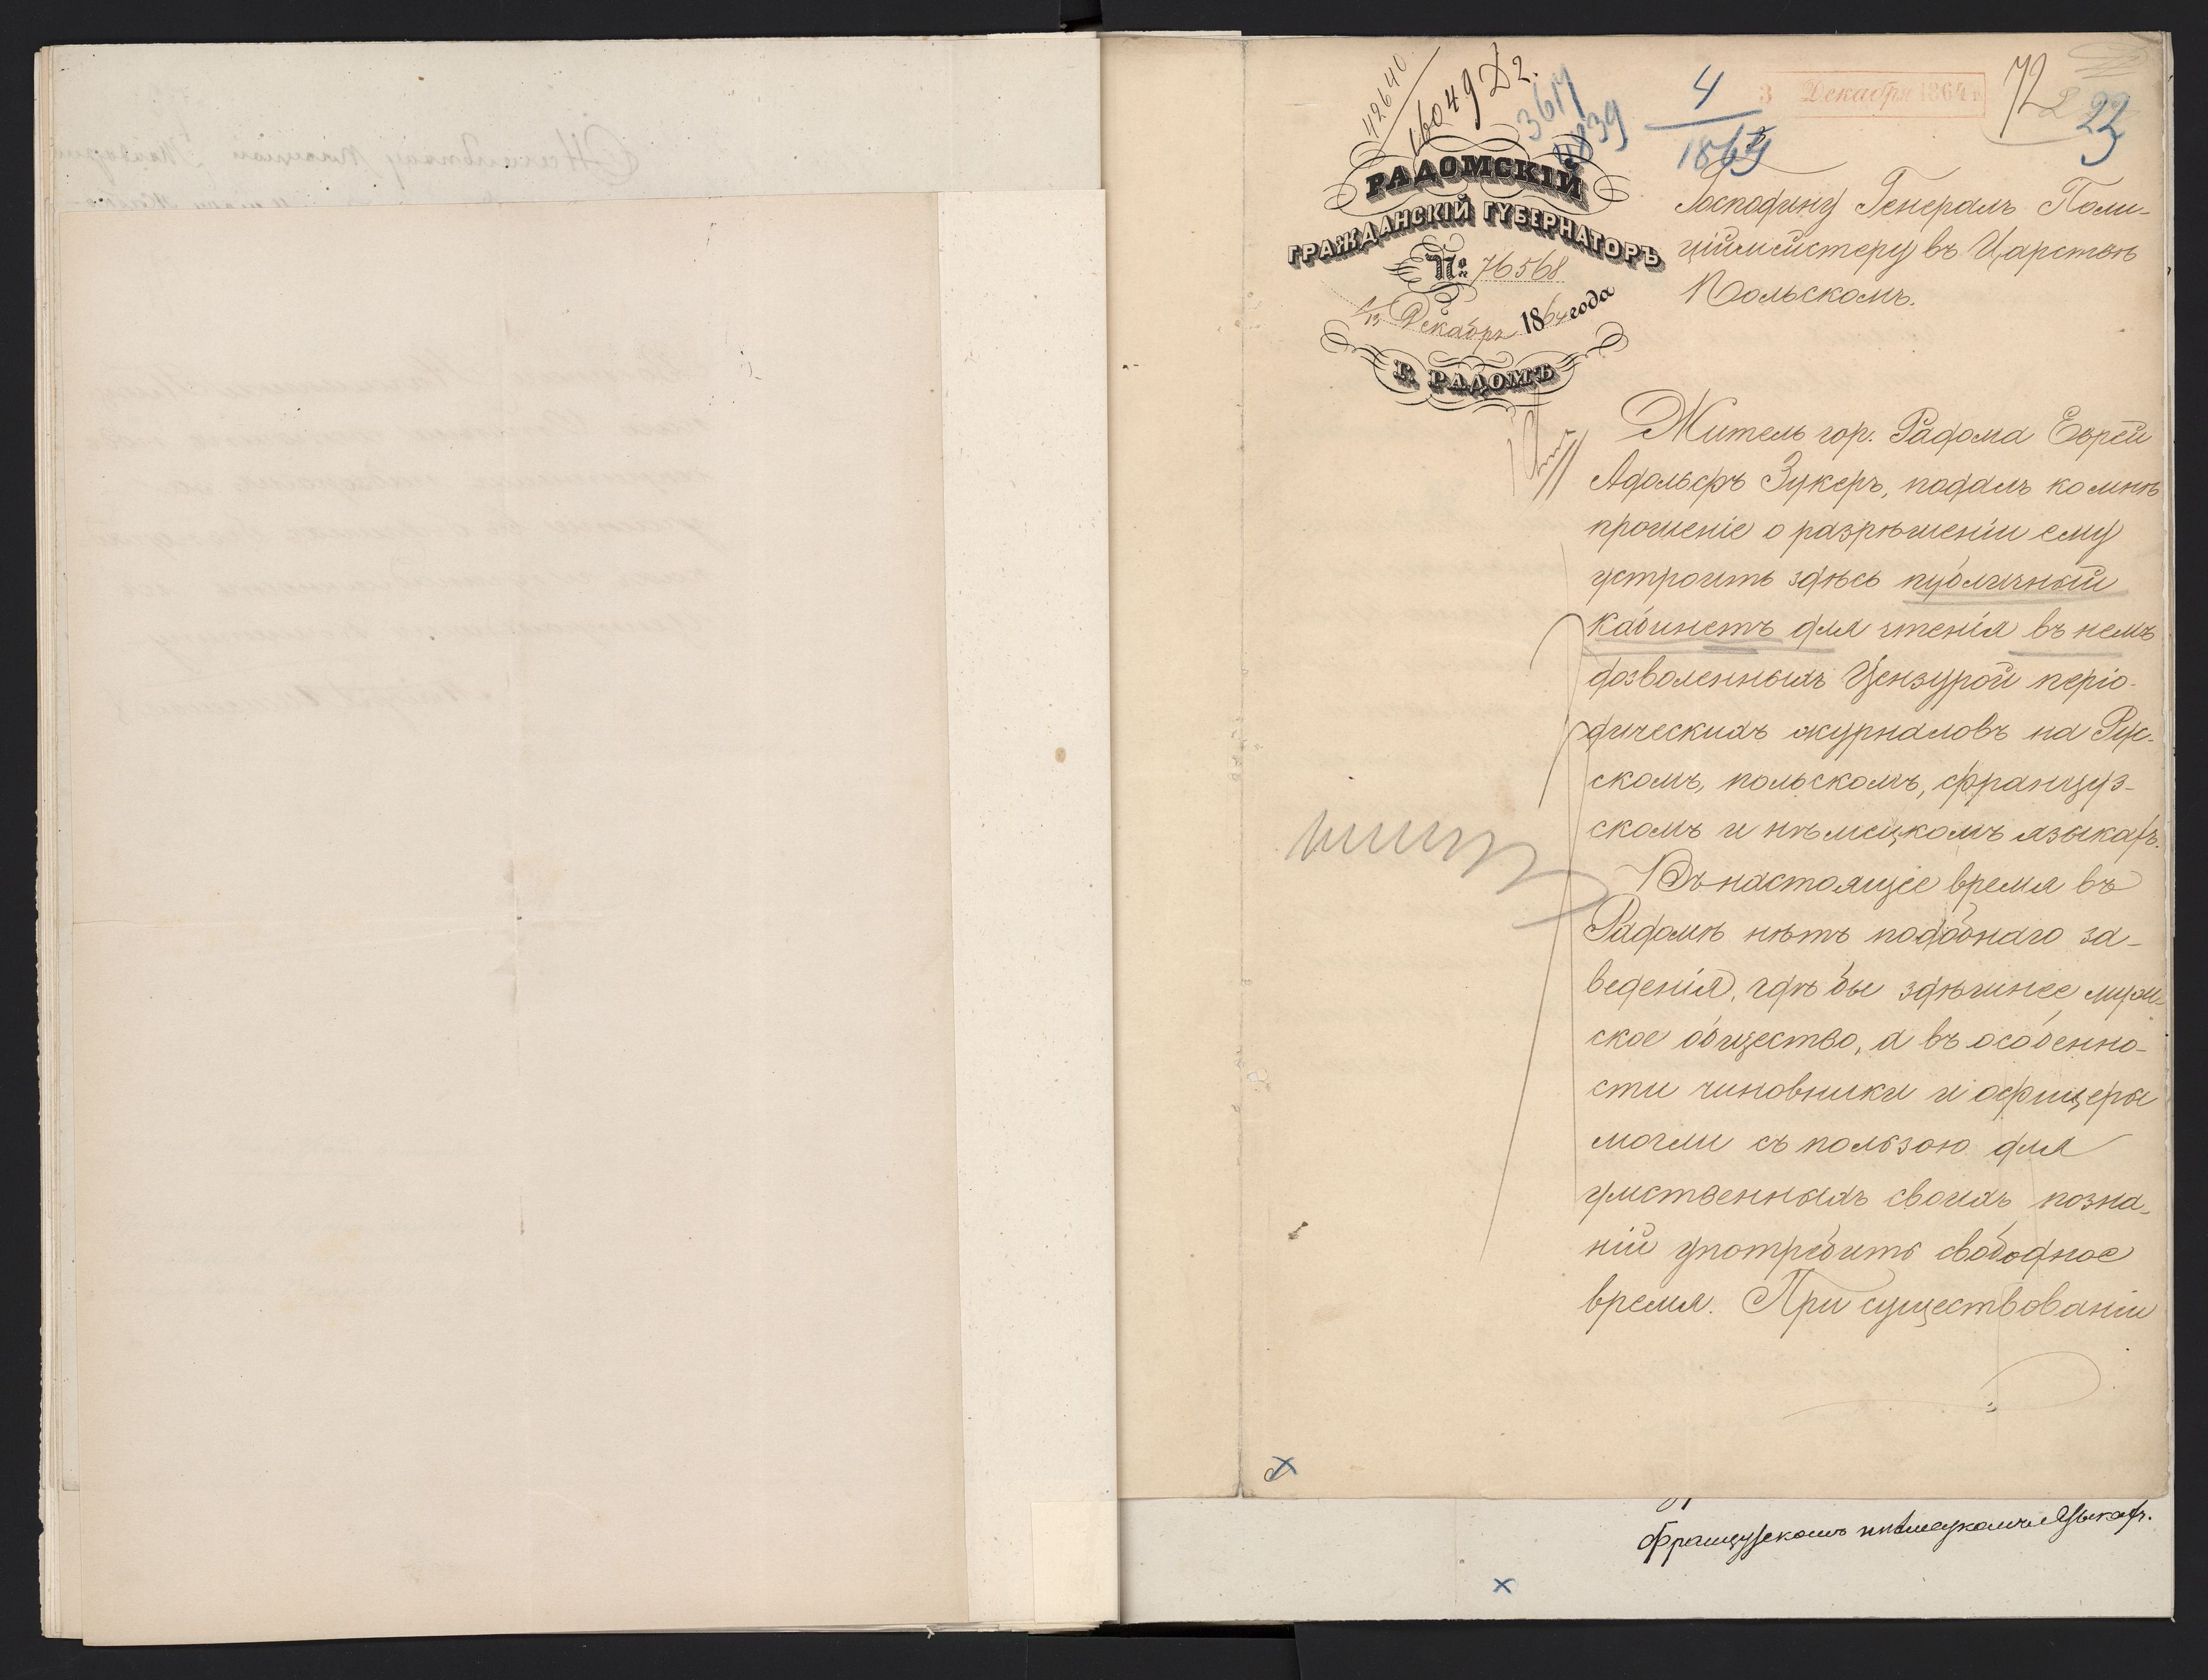 42640
16049 Д2.
3617
4839
4
1864
3 Декабря 1864 г.
72
23
РАДОМСКІЙ
ГРАЖДАНСКІЙ ГУБЕРНАТОРЪ
№ 76568
1/13 Декабря 1864 года
Г. РАДОМЪ
Господину Генералъ Поли-
ціймейстеру въ Царствѣ
Польскомъ.
Житель гор. Радома Еврей
Адольфъ Зукеръ, подалъ ко мнѣ
прошеніе о разрѣшеніи ему
устроить здѣсь публичный
кабинетъ для чтенія въ немъ
дозволенныхъ Цензурой періо-
дическихъ журналовъ на Рус-
скомъ, польскомъ, француз-
скомъ и нѣмецкомъ языкахъ.
Въ настоящее время въ
Радомѣ нѣтъ подобнаго за-
веденія, гдѣ бы здѣшнее
ское общество, а въ особенно-
сти чиновники и офицеры
могли съ пользою для
умственныхъ своихъ позна-
ній употребить свободное
время. При существованіи
Французскомъ и нѣмецкомъ языкахъ.